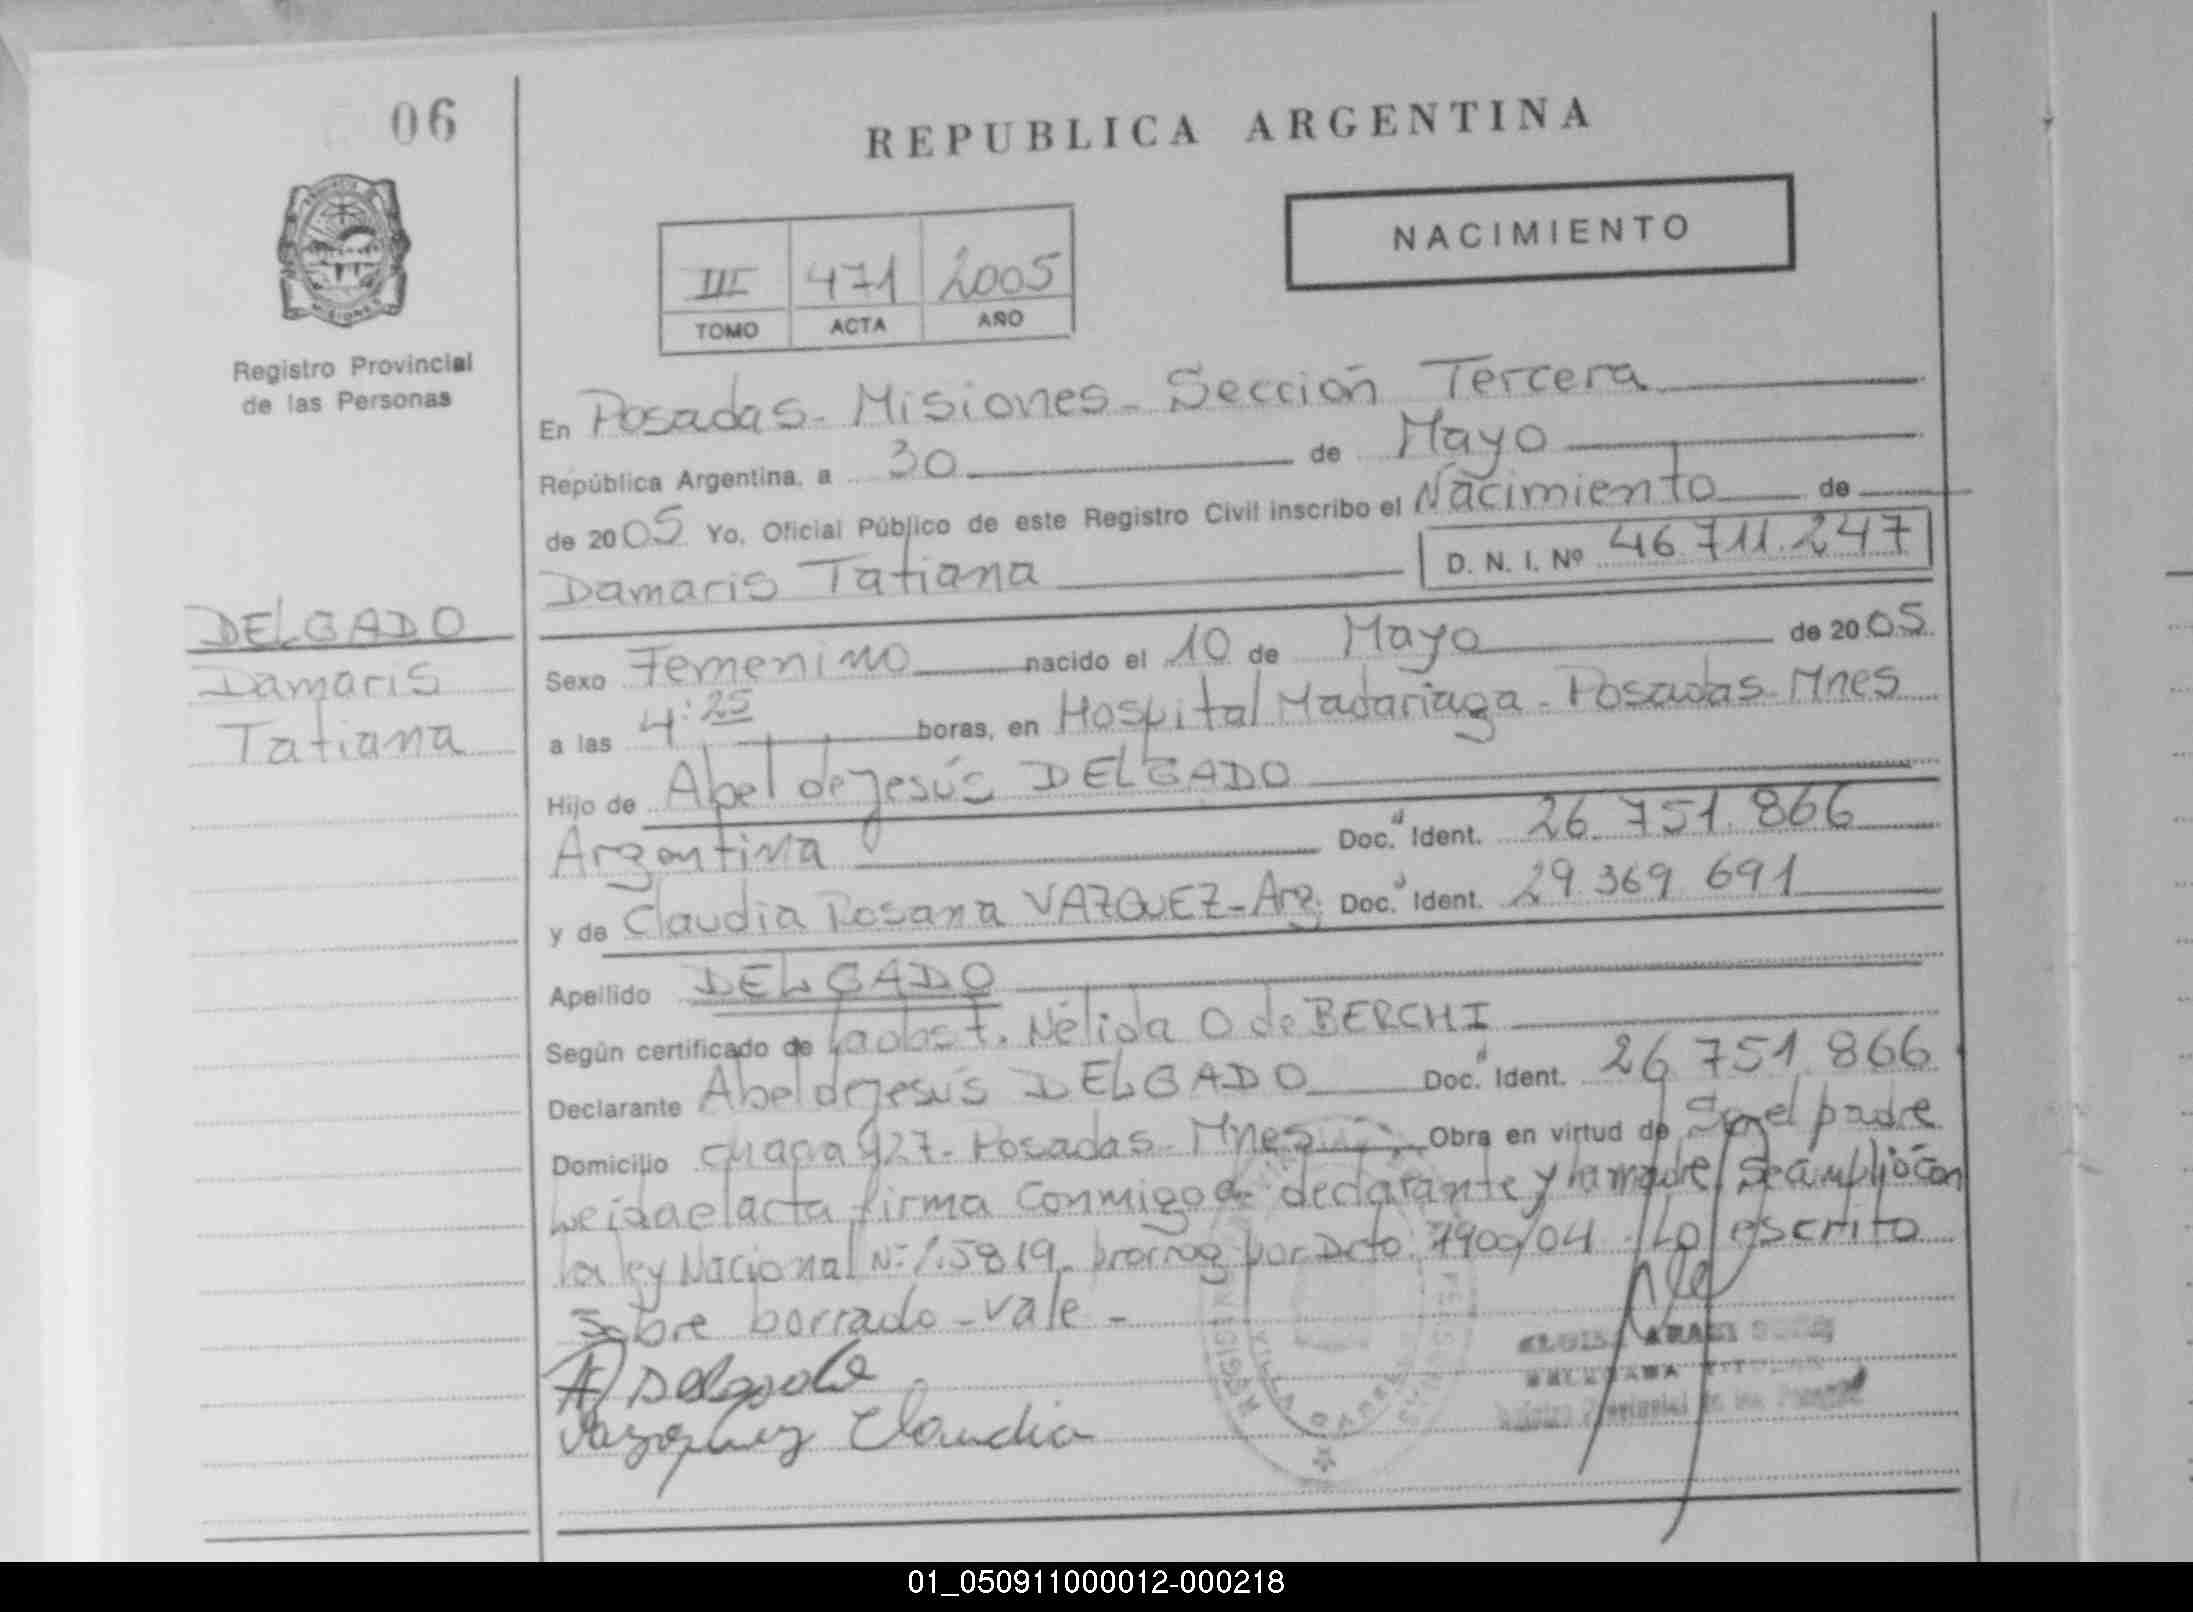 06
REPUBLICA ARGENTINA
NACIMIENTO
III 471 2005
TOMO ACTA AÑO
Registro Provincial
de las Personas
En Posadas - Misiones - Sección Tercera
República Argentina, a 30 de Mayo
de 2005 Yo, Oficial Público de este Registro Civil inscribo el Nacimiento de
Damaris Tatiana D. N. I. Nº 46.711.247
DELGADO
Damaris
Tatiana
Sexo Femenino nacido el 10 de Mayo de 2005
a las 4:25 horas, en Hospital Madariaga - Posadas - Mnes
Hijo de Abel de Jesús DELGADO
Argentina Doc. Ident. 26.751.866
y de Claudia Rosana VAZQUEZ - Arg. Doc. Ident. 29.369.691
Apellido DELGADO
Según certificado de la obst. Nélida O de BERCHI
Declarante Abel de Jesús DELGADO Doc. Ident. 26.751.866
Domicilio 927 - Posadas - Mnes Obra en virtud de Ser el padre
Leida el acta firma conmigo el declarante y la madre/ Se amplió con
la ley Nacional Nº 1.5819 - prorrog por Dcto. 7900/04 - Lo escrito
Sobre borrado - vale -
A Delgado
Vazquez Claudia
Registro Provincial de las Personas
01_050911000012-000218